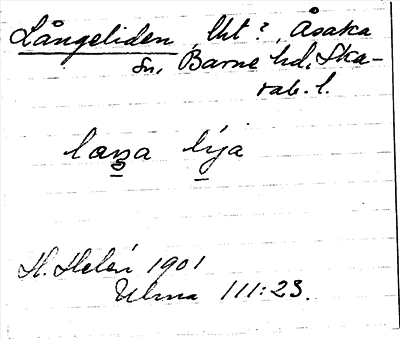 Långeliden, Utt?, Åsaka
sn, Barne hd, Ska-
rab. l.
laŋa lija
H. Helén 1901
Ulma 111:23.